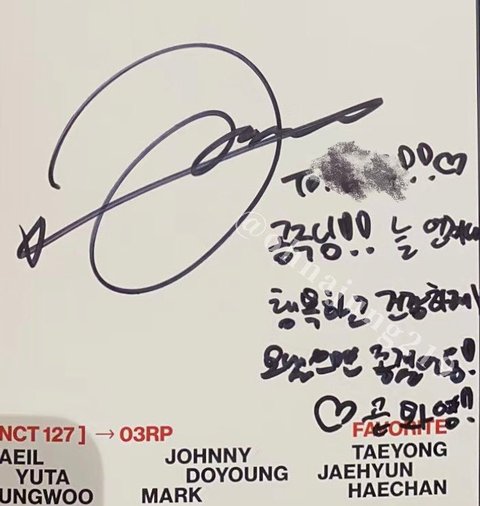 To. !! ♡
공주님!! 늘 언제나
행복하고 건강하게
♡ 곧 봐용!!
NCT 127 ] → 03RP
FAVORITE
AEIL
YUTA
UNGWOO
JOHNNY
DOYOUNG
MARK
TAEYONG
JAEHYUN
HAECHAN